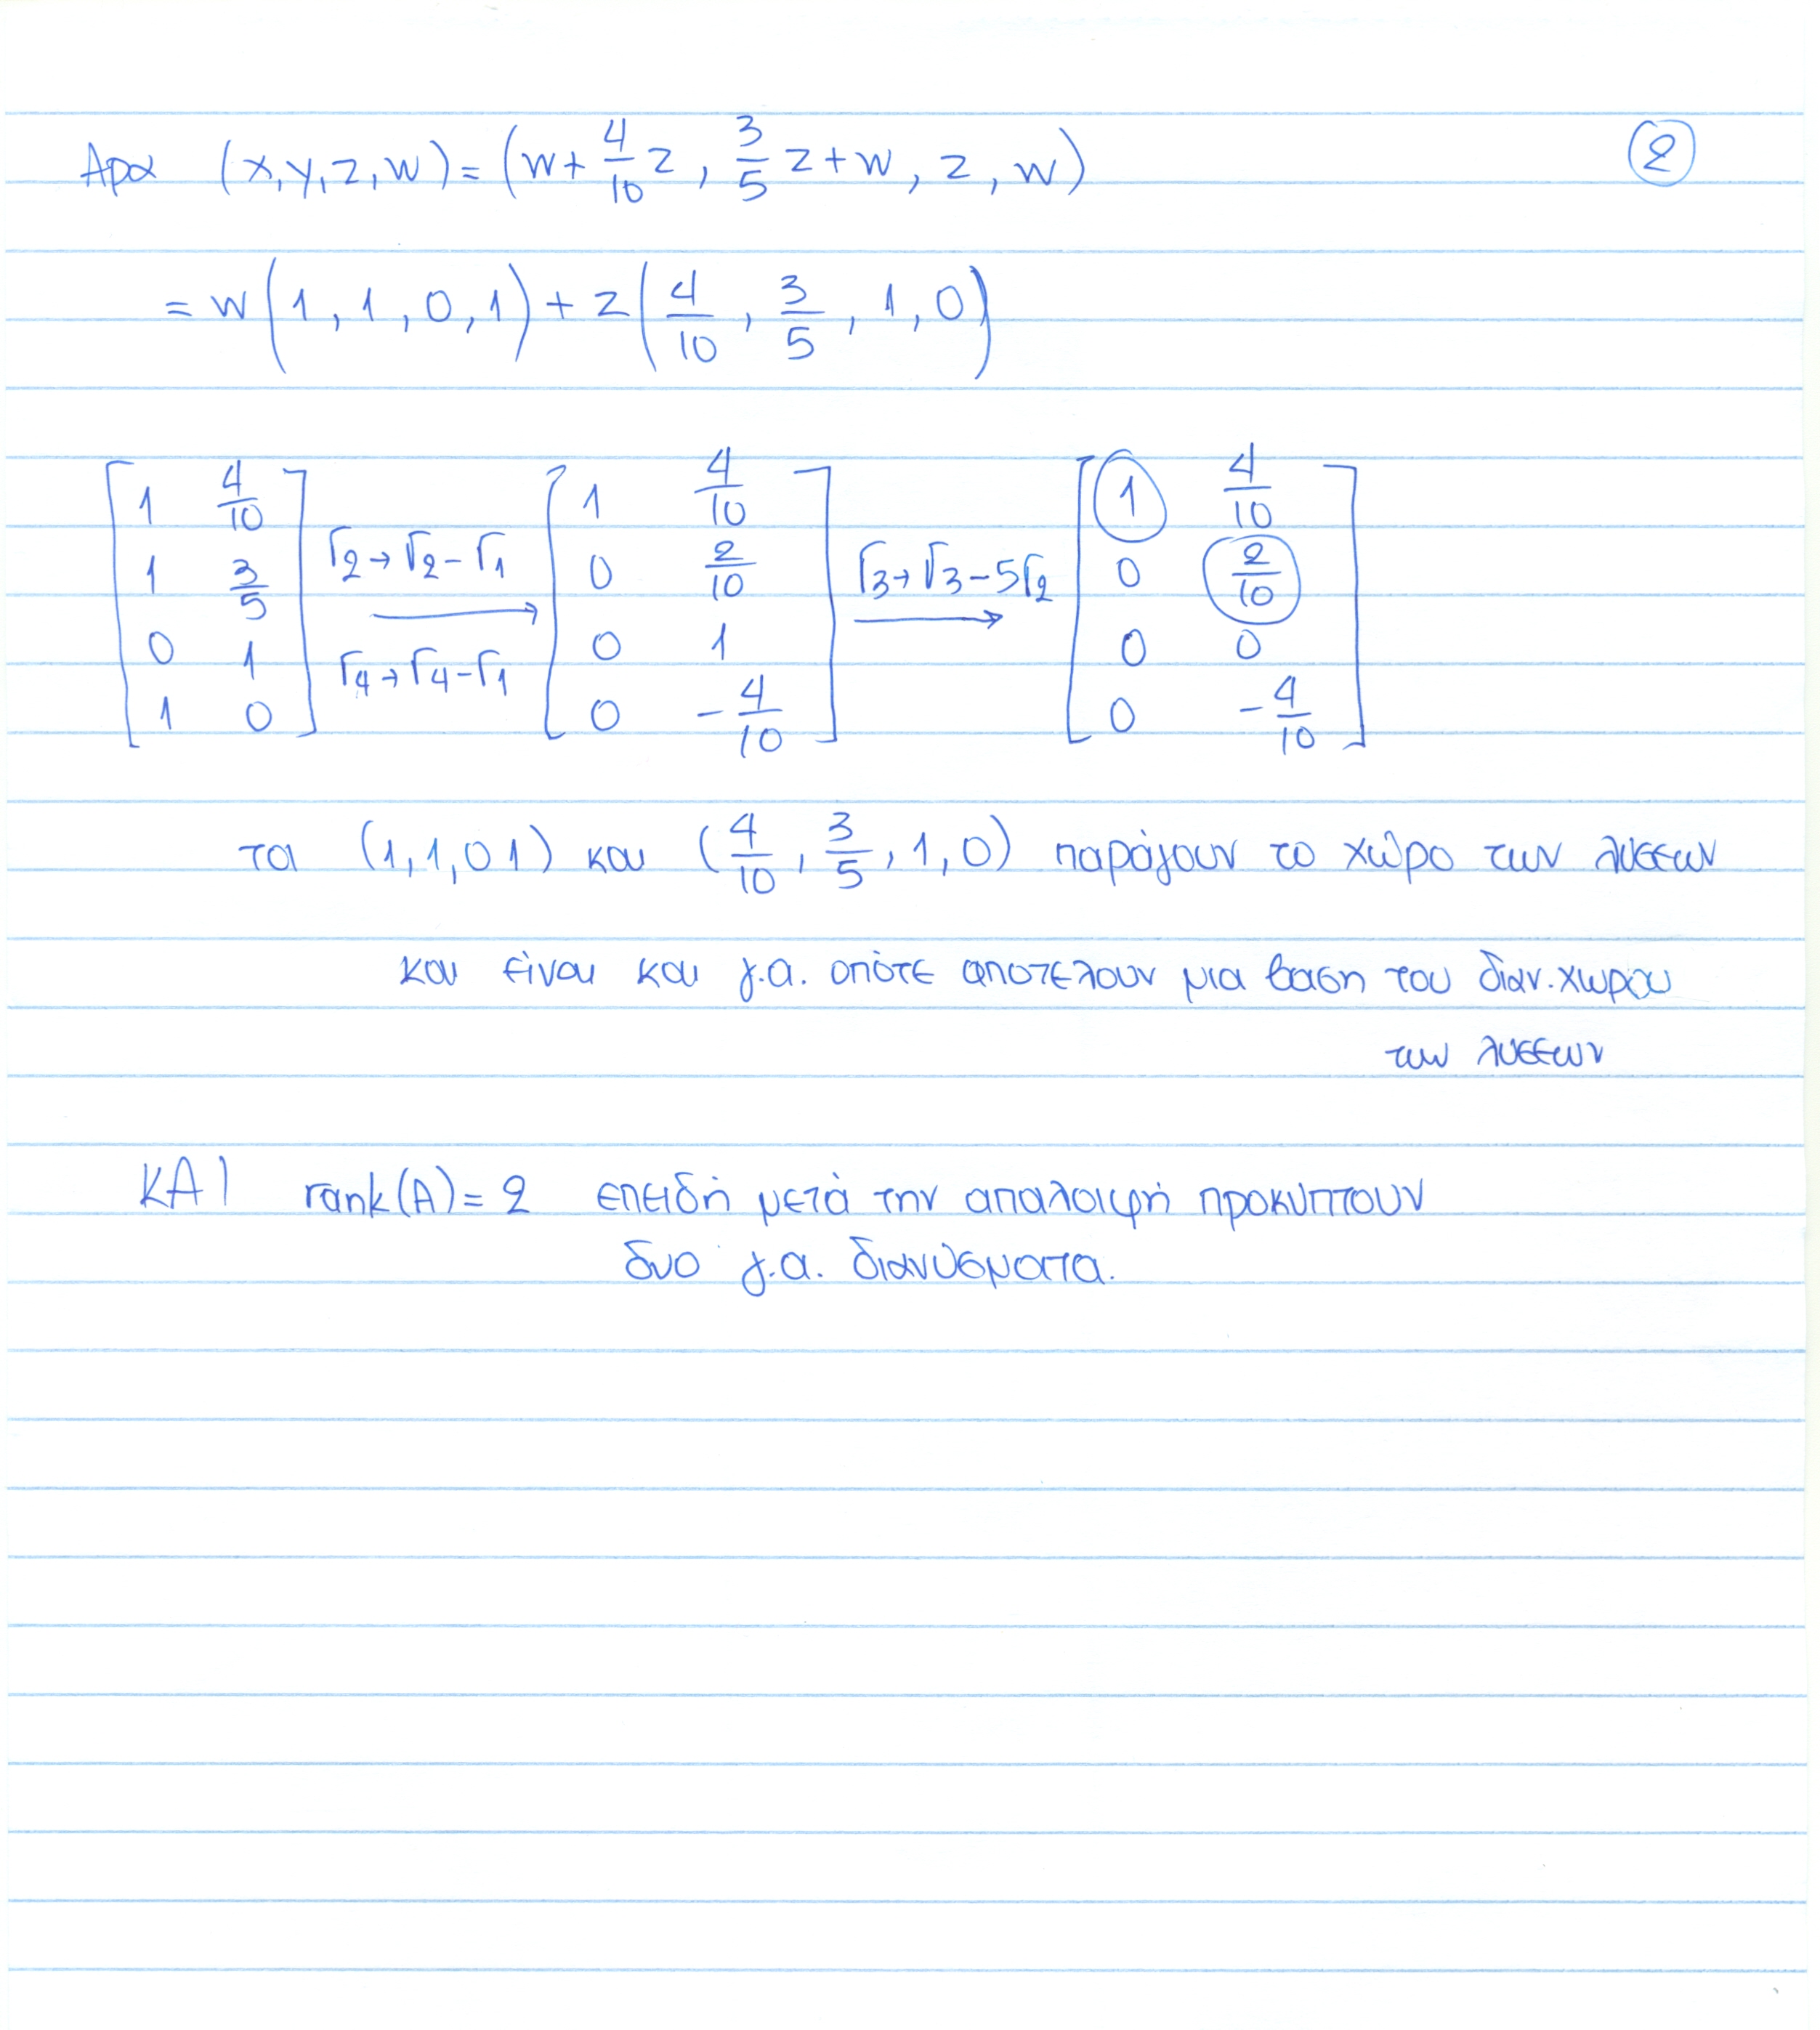 Αρα (x,y,z,w) = (w + 4/10 z, 3/5 z + w, z, w) ②
= w(1,1,0,1) + z(4/10, 3/5, 1, 0)
[1 4/10; 1 3/5; 0 1; 1 0] r2→r2-r1, r4→r4-r1 ⟶ [1 4/10; 0 2/10; 0 1; 0 -4/10] r3→r3-5r2 ⟶ [1 4/10; 0 2/10; 0 0; 0 -4/10]
τα (1,1,0 1) και (4/10, 3/5, 1, 0) παράγουν το χώρο των λυσεων
και είναι και γ.α. οπότε αποτελουν μια βαση του διαν.χωρου
των λυσεων
ΚΑΙ rank(A) = 2 επειδή μετά την απαλοιφή προκυπτουν
δυο γ.α. διανύσματα.